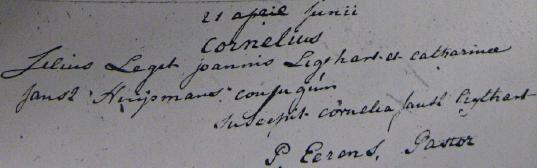 21 aprie Junii
Cornelius
filius Legit joannis Ligthart et catharinae
Jansz Huijsmans conjugum
suscepit cornelia Jansz Ligthart
P. Eerens, Pastor